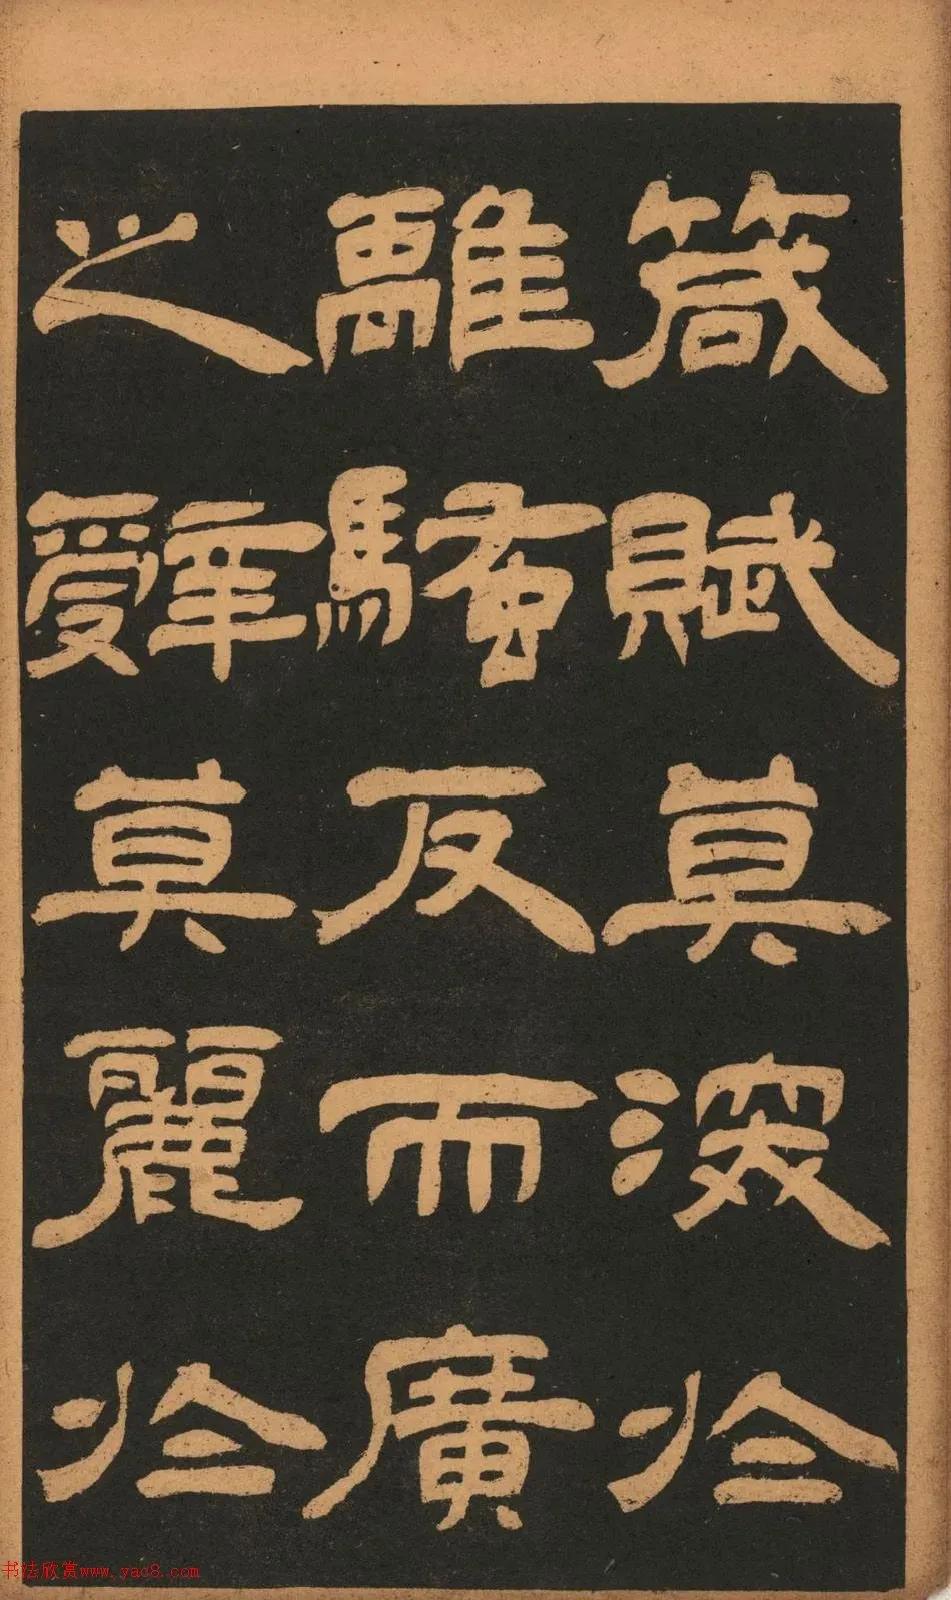 箴賦莫深於
離騷反而廣
之辤莫麗於
书法欣赏www.yac8.com